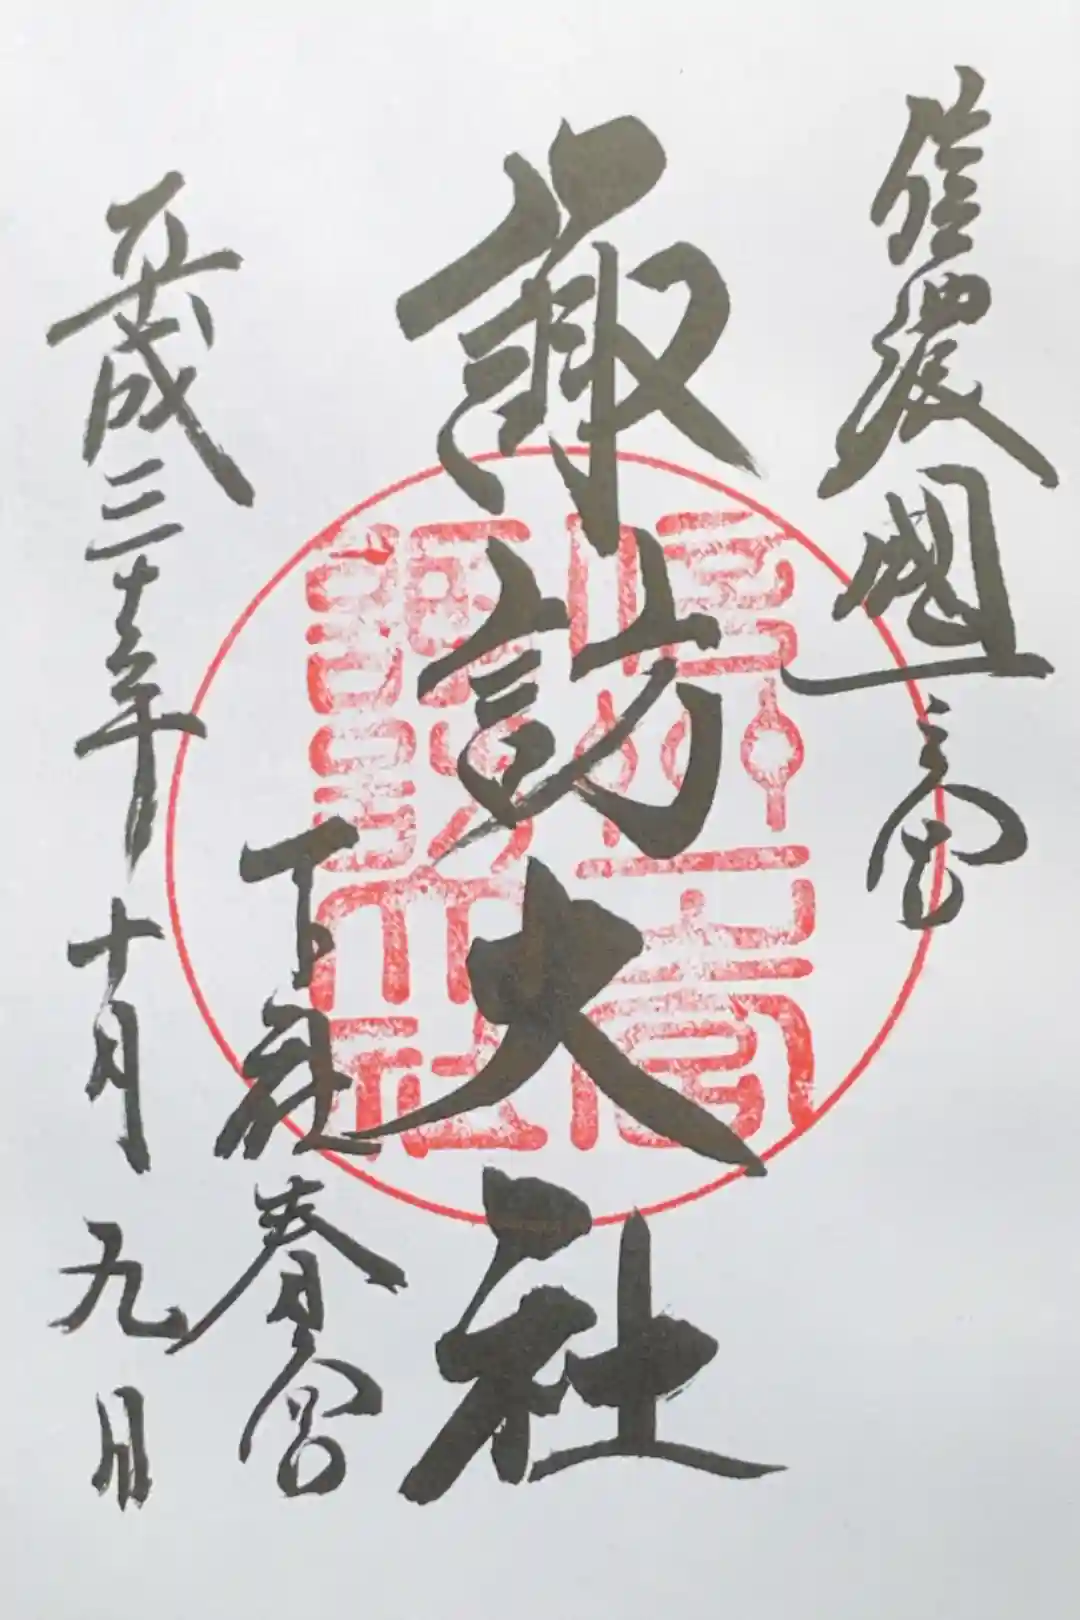 信濃國一之宮
諏訪大社
下社春宮
平成三十年十月九日
信州一之宮
諏訪大社